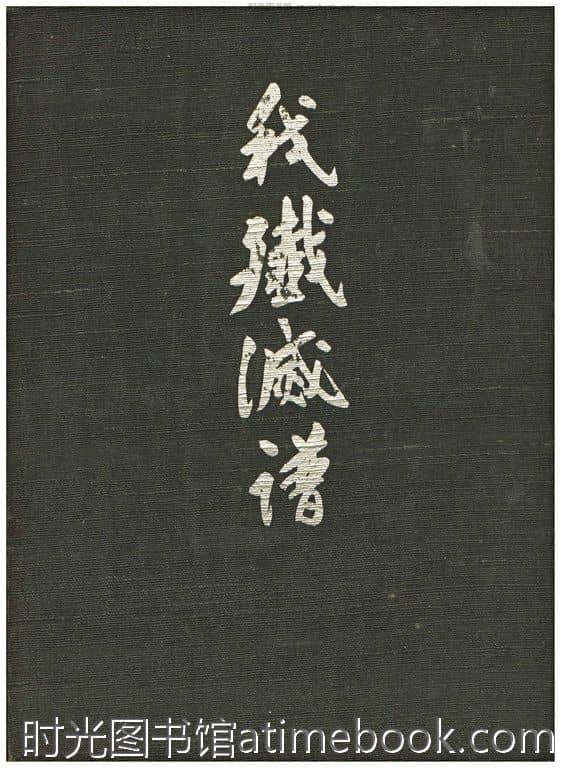 我殲滅譜
时光图书馆atimebook.com